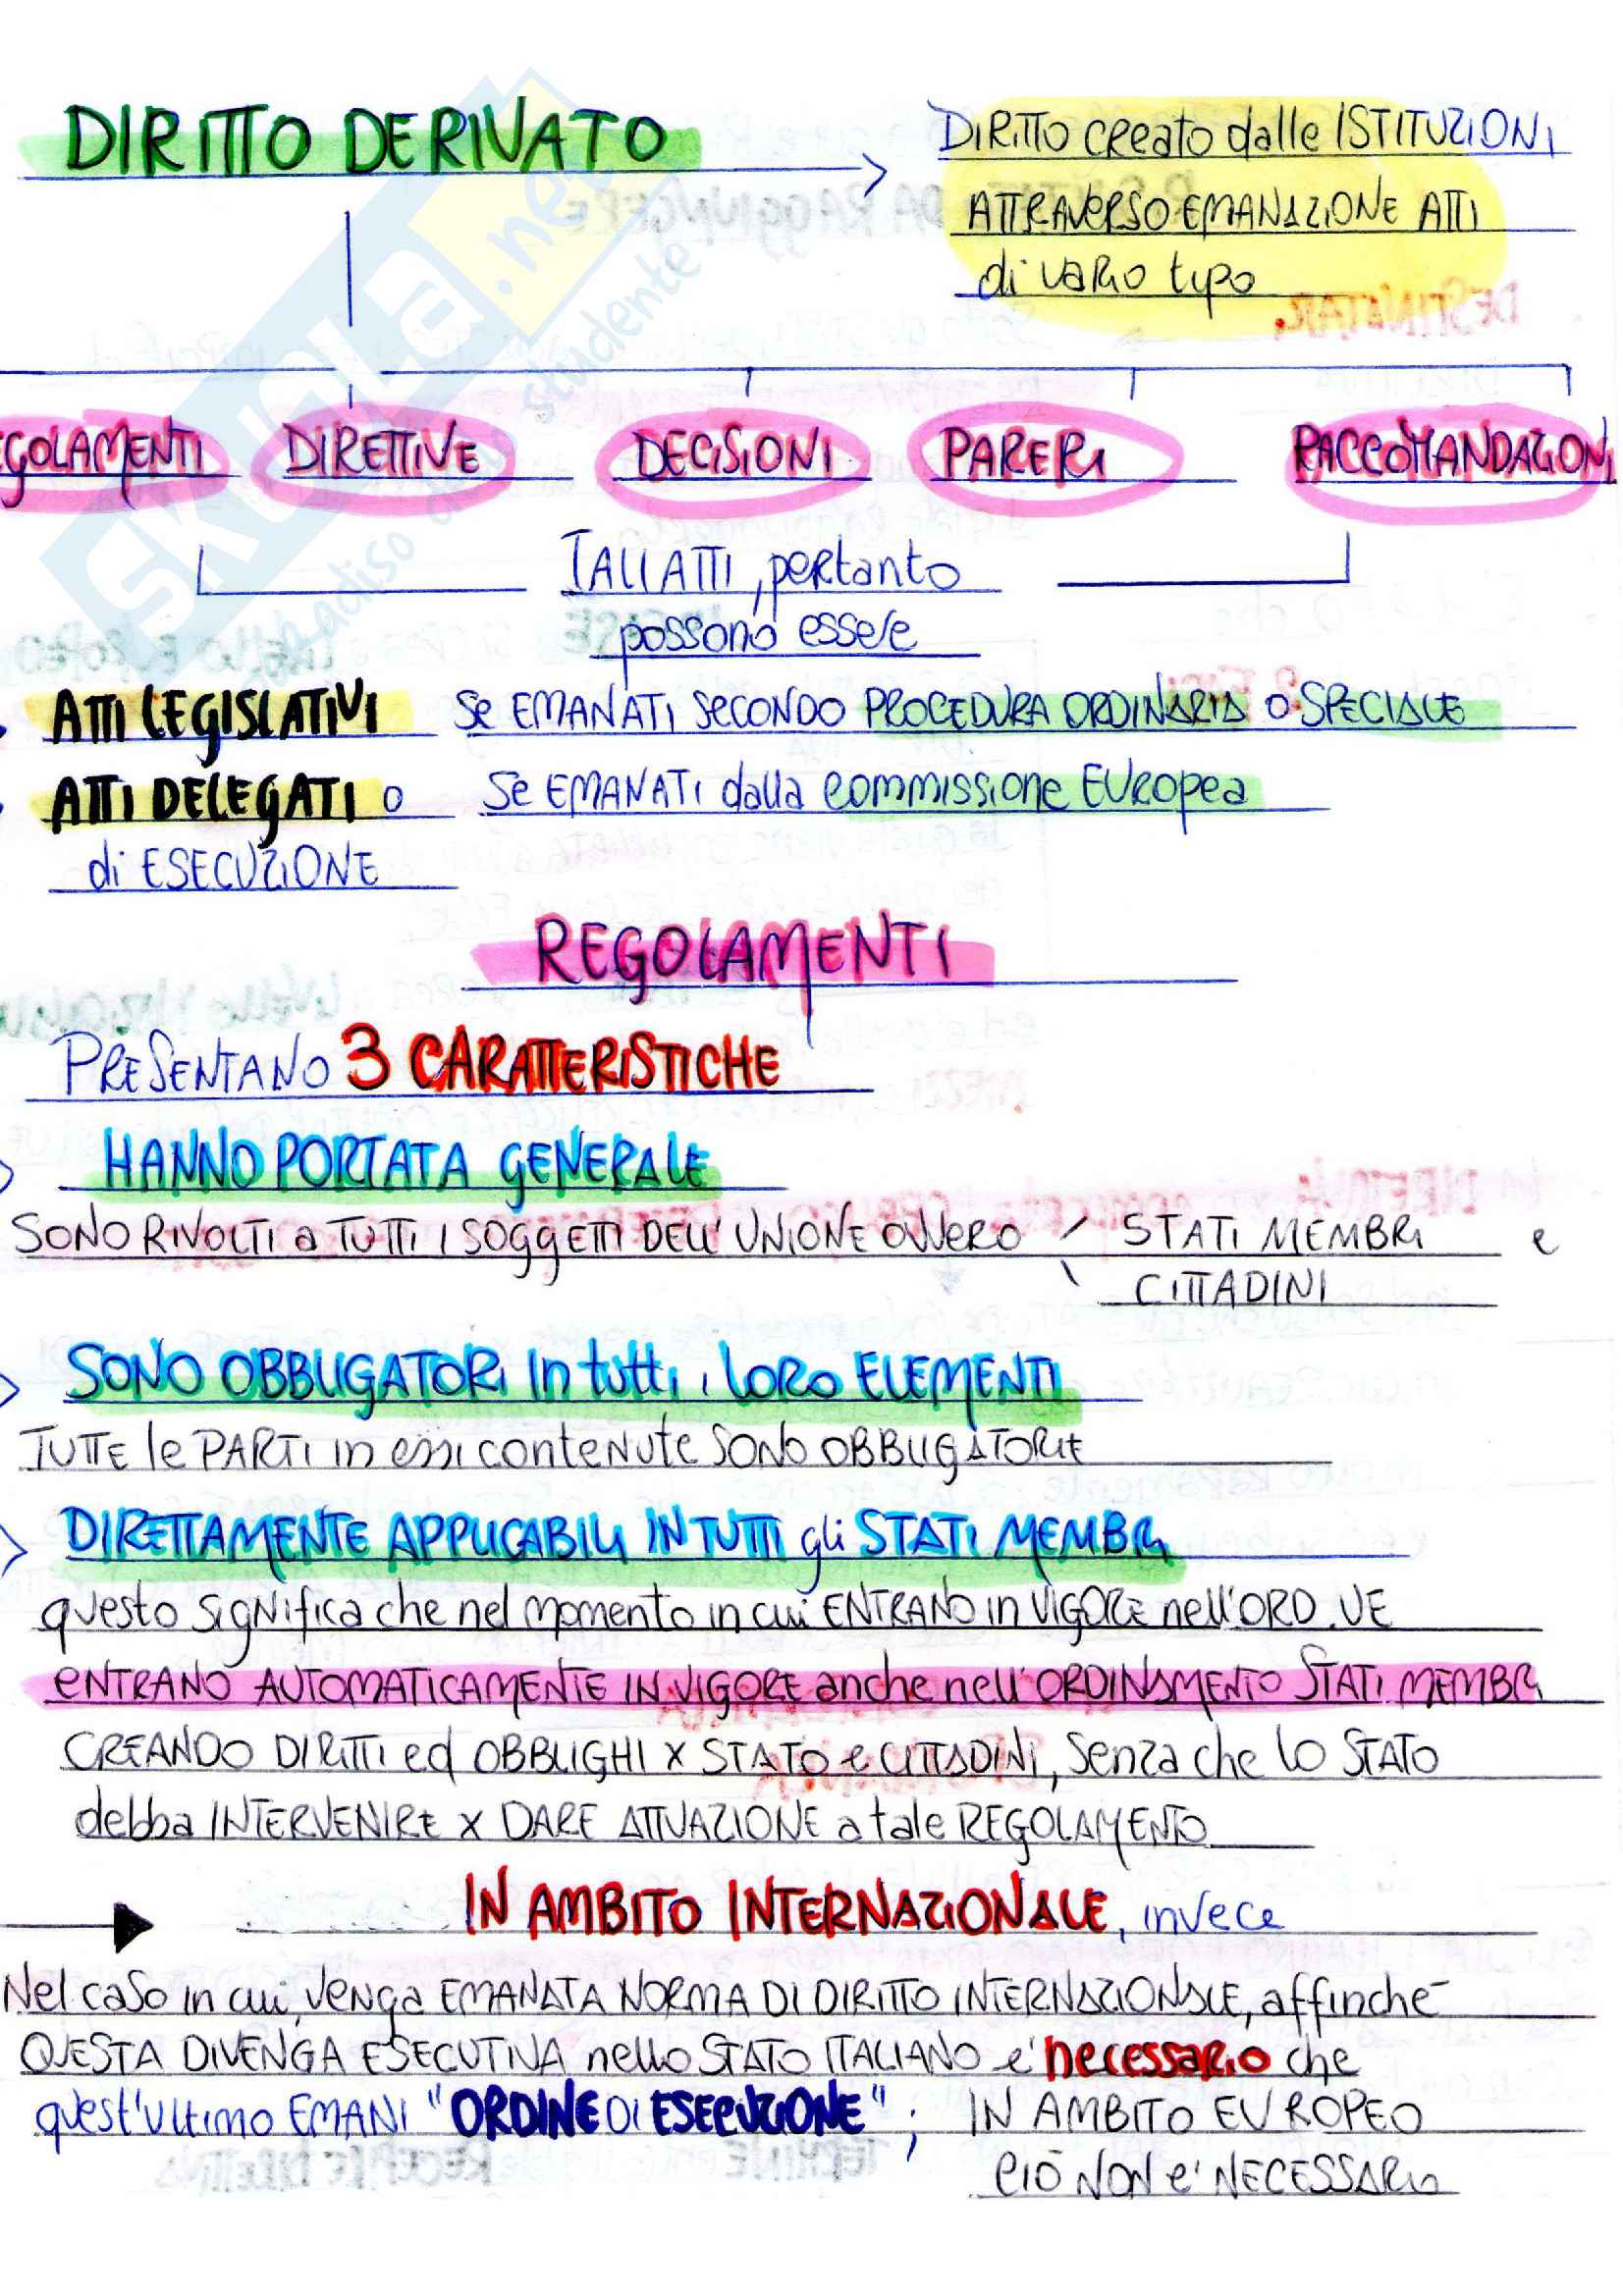 DIRITTO DERIVATO
DIRITTO creato dalle ISTITUZIONI
ATTRAVERSO EMANAZIONE ATTI
di vario tipo
EGOLAMENTI DIRETTIVE DECISIONI PARERI RACCOMANDAZIONI
TALI ATTI, pertanto
possono essere
ATTI LEGISLATIVI Se EMANATI secondo PROCEDURA ORDINARIA o SPECIALE
ATTI DELEGATI o Se EMANATI dalla commissione EUROPEA
di ESECUZIONE
REGOLAMENTI
PRESENTANO 3 CARATTERISTICHE
HANNO PORTATA GENERALE
SONO RIVOLTI a TUTTI I SOGGETTI DELL'UNIONE OVVERO / STATI MEMBRI e
\ CITTADINI
SONO OBBLIGATORI In tutti i loro ELEMENTI
TUTTE le PARTI in essi contenute SONO OBBLIGATORIE
DIRETTAMENTE APPLICABILI IN TUTTI gli STATI MEMBRI
questo significa che nel momento in cui ENTRANO in VIGORE nell'ORD. UE
ENTRANO AUTOMATICAMENTE IN VIGORE anche nell'ORDINAMENTO STATI MEMBRI
CREANDO DIRITTI ed OBBLIGHI x STATO e CITTADINI, senza che lo STATO
debba INTERVENIRE x DARE ATTUAZIONE a tale REGOLAMENTO
IN AMBITO INTERNAZIONALE, invece
Nel caso in cui venga EMANATA NORMA DI DIRITTO INTERNAZIONALE, affinché
QUESTA DIVENGA ESECUTIVA nello STATO ITALIANO e' necessario che
quest'ultimo EMANI "ORDINE DI ESECUZIONE" ; IN AMBITO EUROPEO
CIÒ NON e' NECESSARIO
SKUOLA.net